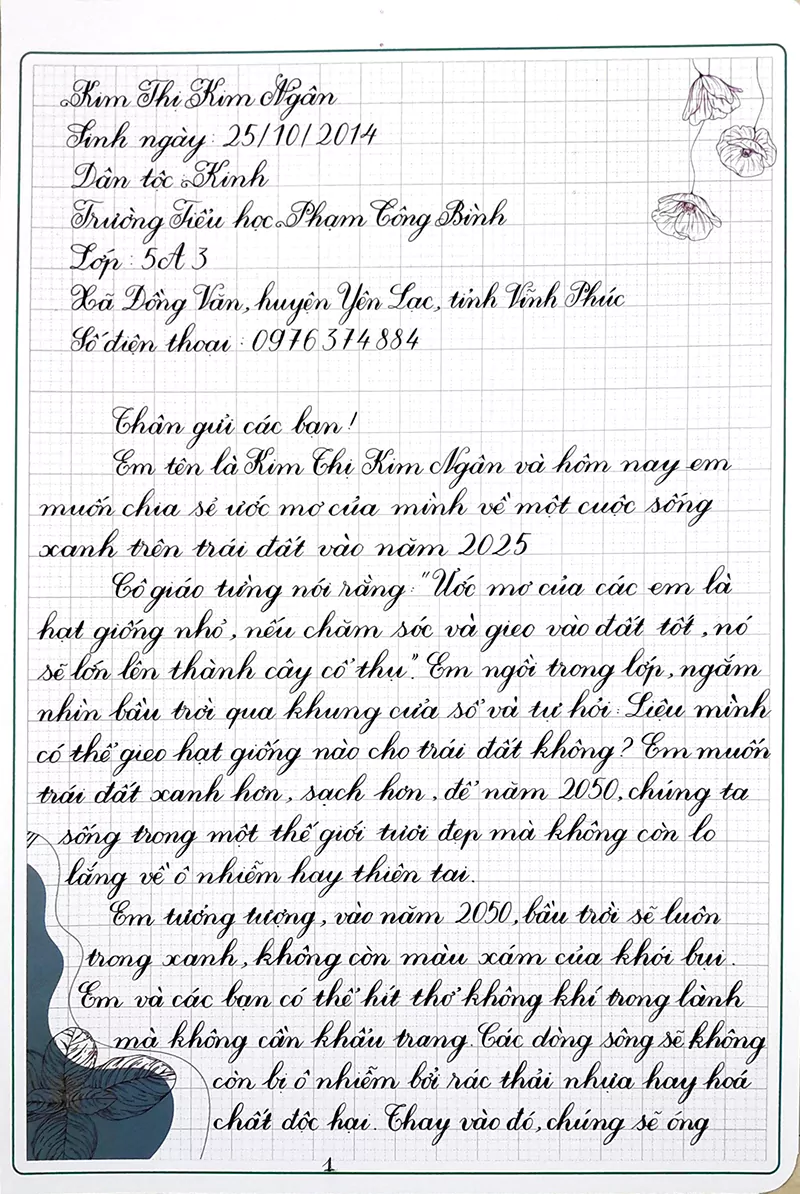 Kim Thị Kim Ngân
Sinh ngày: 25/10/2014
Dân tộc: Kinh
Trường Tiểu học Phạm Công Bình
Lớp: 5A3
Xã Đồng Văn, huyện Yên Lạc, tỉnh Vĩnh Phúc
Số điện thoại: 0976374884
Thân gửi các bạn!
Em tên là Kim Thị Kim Ngân và hôm nay em
muốn chia sẻ ước mơ của mình về một cuộc sống
xanh trên trái đất vào năm 2025
Cô giáo từng nói rằng: "Ước mơ của các em là
hạt giống nhỏ, nếu chăm sóc và gieo vào đất tốt, nó
sẽ lớn lên thành cây cổ thụ". Em ngồi trong lớp, ngắm
nhìn bầu trời qua khung cửa sổ và tự hỏi: Liệu mình
có thể gieo hạt giống nào cho trái đất không? Em muốn
trái đất xanh hơn, sạch hơn, để năm 2050, chúng ta
sống trong một thế giới tươi đẹp mà không còn lo
lắng về ô nhiễm hay thiên tai.
Em tưởng tượng, vào năm 2050, bầu trời sẽ luôn
trong xanh, không còn màu xám của khói bụi.
Em và các bạn có thể hít thở không khí trong lành
mà không cần khẩu trang. Các dòng sông sẽ không
còn bị ô nhiễm bởi rác thải nhựa hay hoá
chất độc hại. Thay vào đó, chúng sẽ óng
1